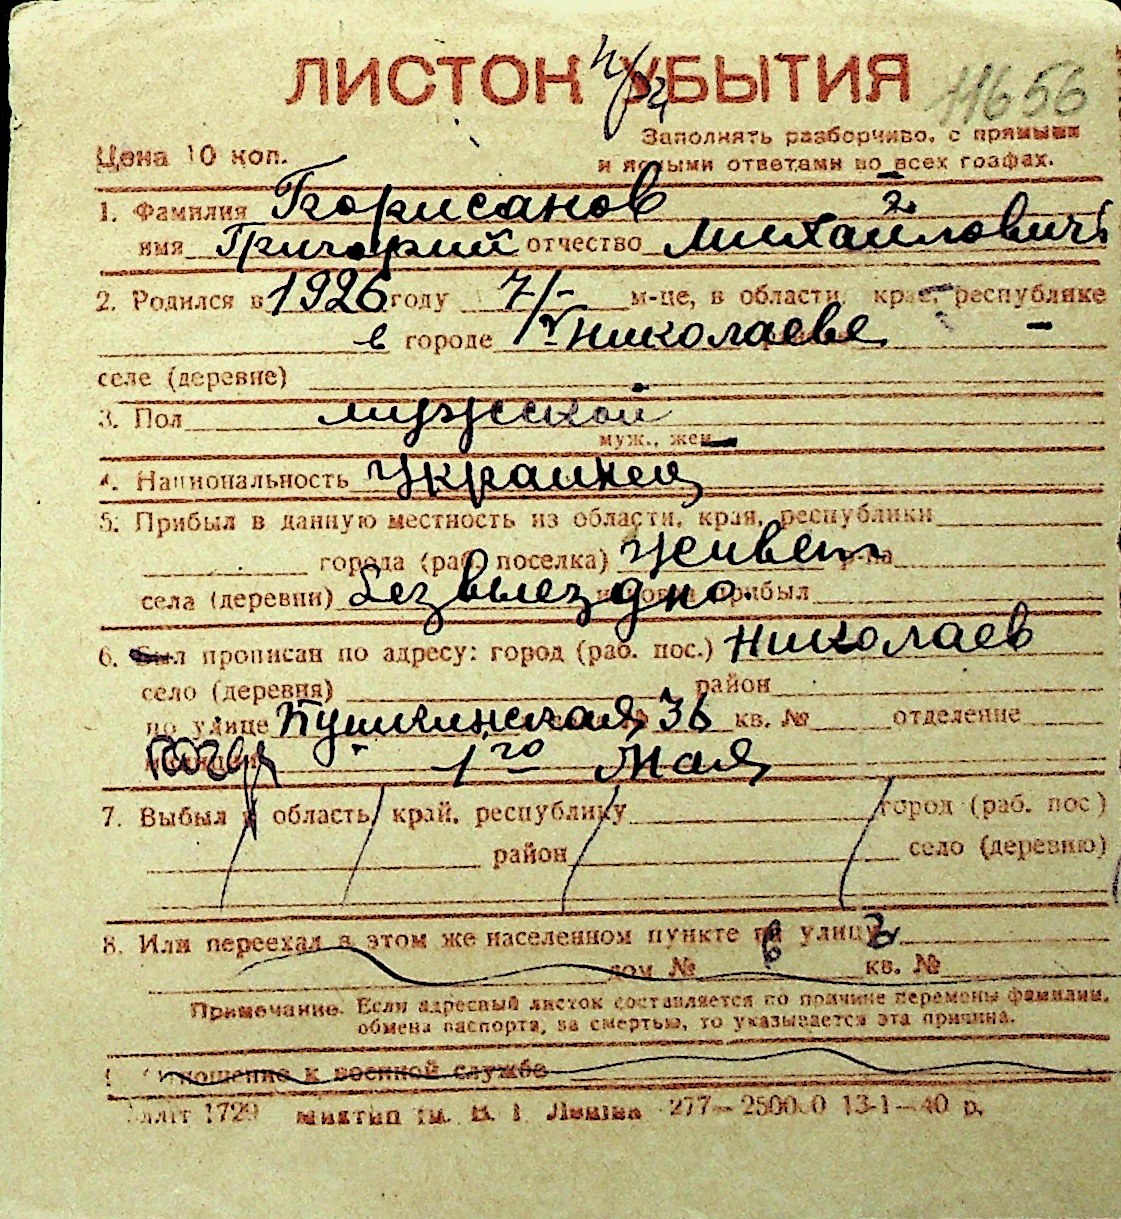 ЛИСТОК УБЫТИЯ 11656
Цена 10 коп.
Заполнять разборчиво, с прямыми
и ясными ответами во всех графах.
1. Фамилия Борисанов
имя Григорий отчество Михайлович
2. Родился в 1926 году 7/- м-це, в области, крае, республике
в городе Николаеве
селе (деревне)
3. Пол мужской
муж., жен
4. Национальность Украинец
5. Прибыл в данную местность из области, края, республики
города (раб. поселка) Живет р-на
села (деревни) безвыездно. прибыл
6. Был прописан по адресу: город (раб. пос.) Николаев
село (деревня) район
по улице Пушкинская 36 кв. № отделение
милиции 1го Мая
7. Выбыл в область, край, республику город (раб. пос)
район село (деревню)
8. Или переехал в этом же населенном пункте по улице
дом № кв. №
Примечание. Если адресный листок составляется по причине перемены фамилии,
обмена паспорта, за смертью, то указывается эта причина.
Отношение к военной службе
1729 ім. В. І Леніна 277— 13-1—40 р.